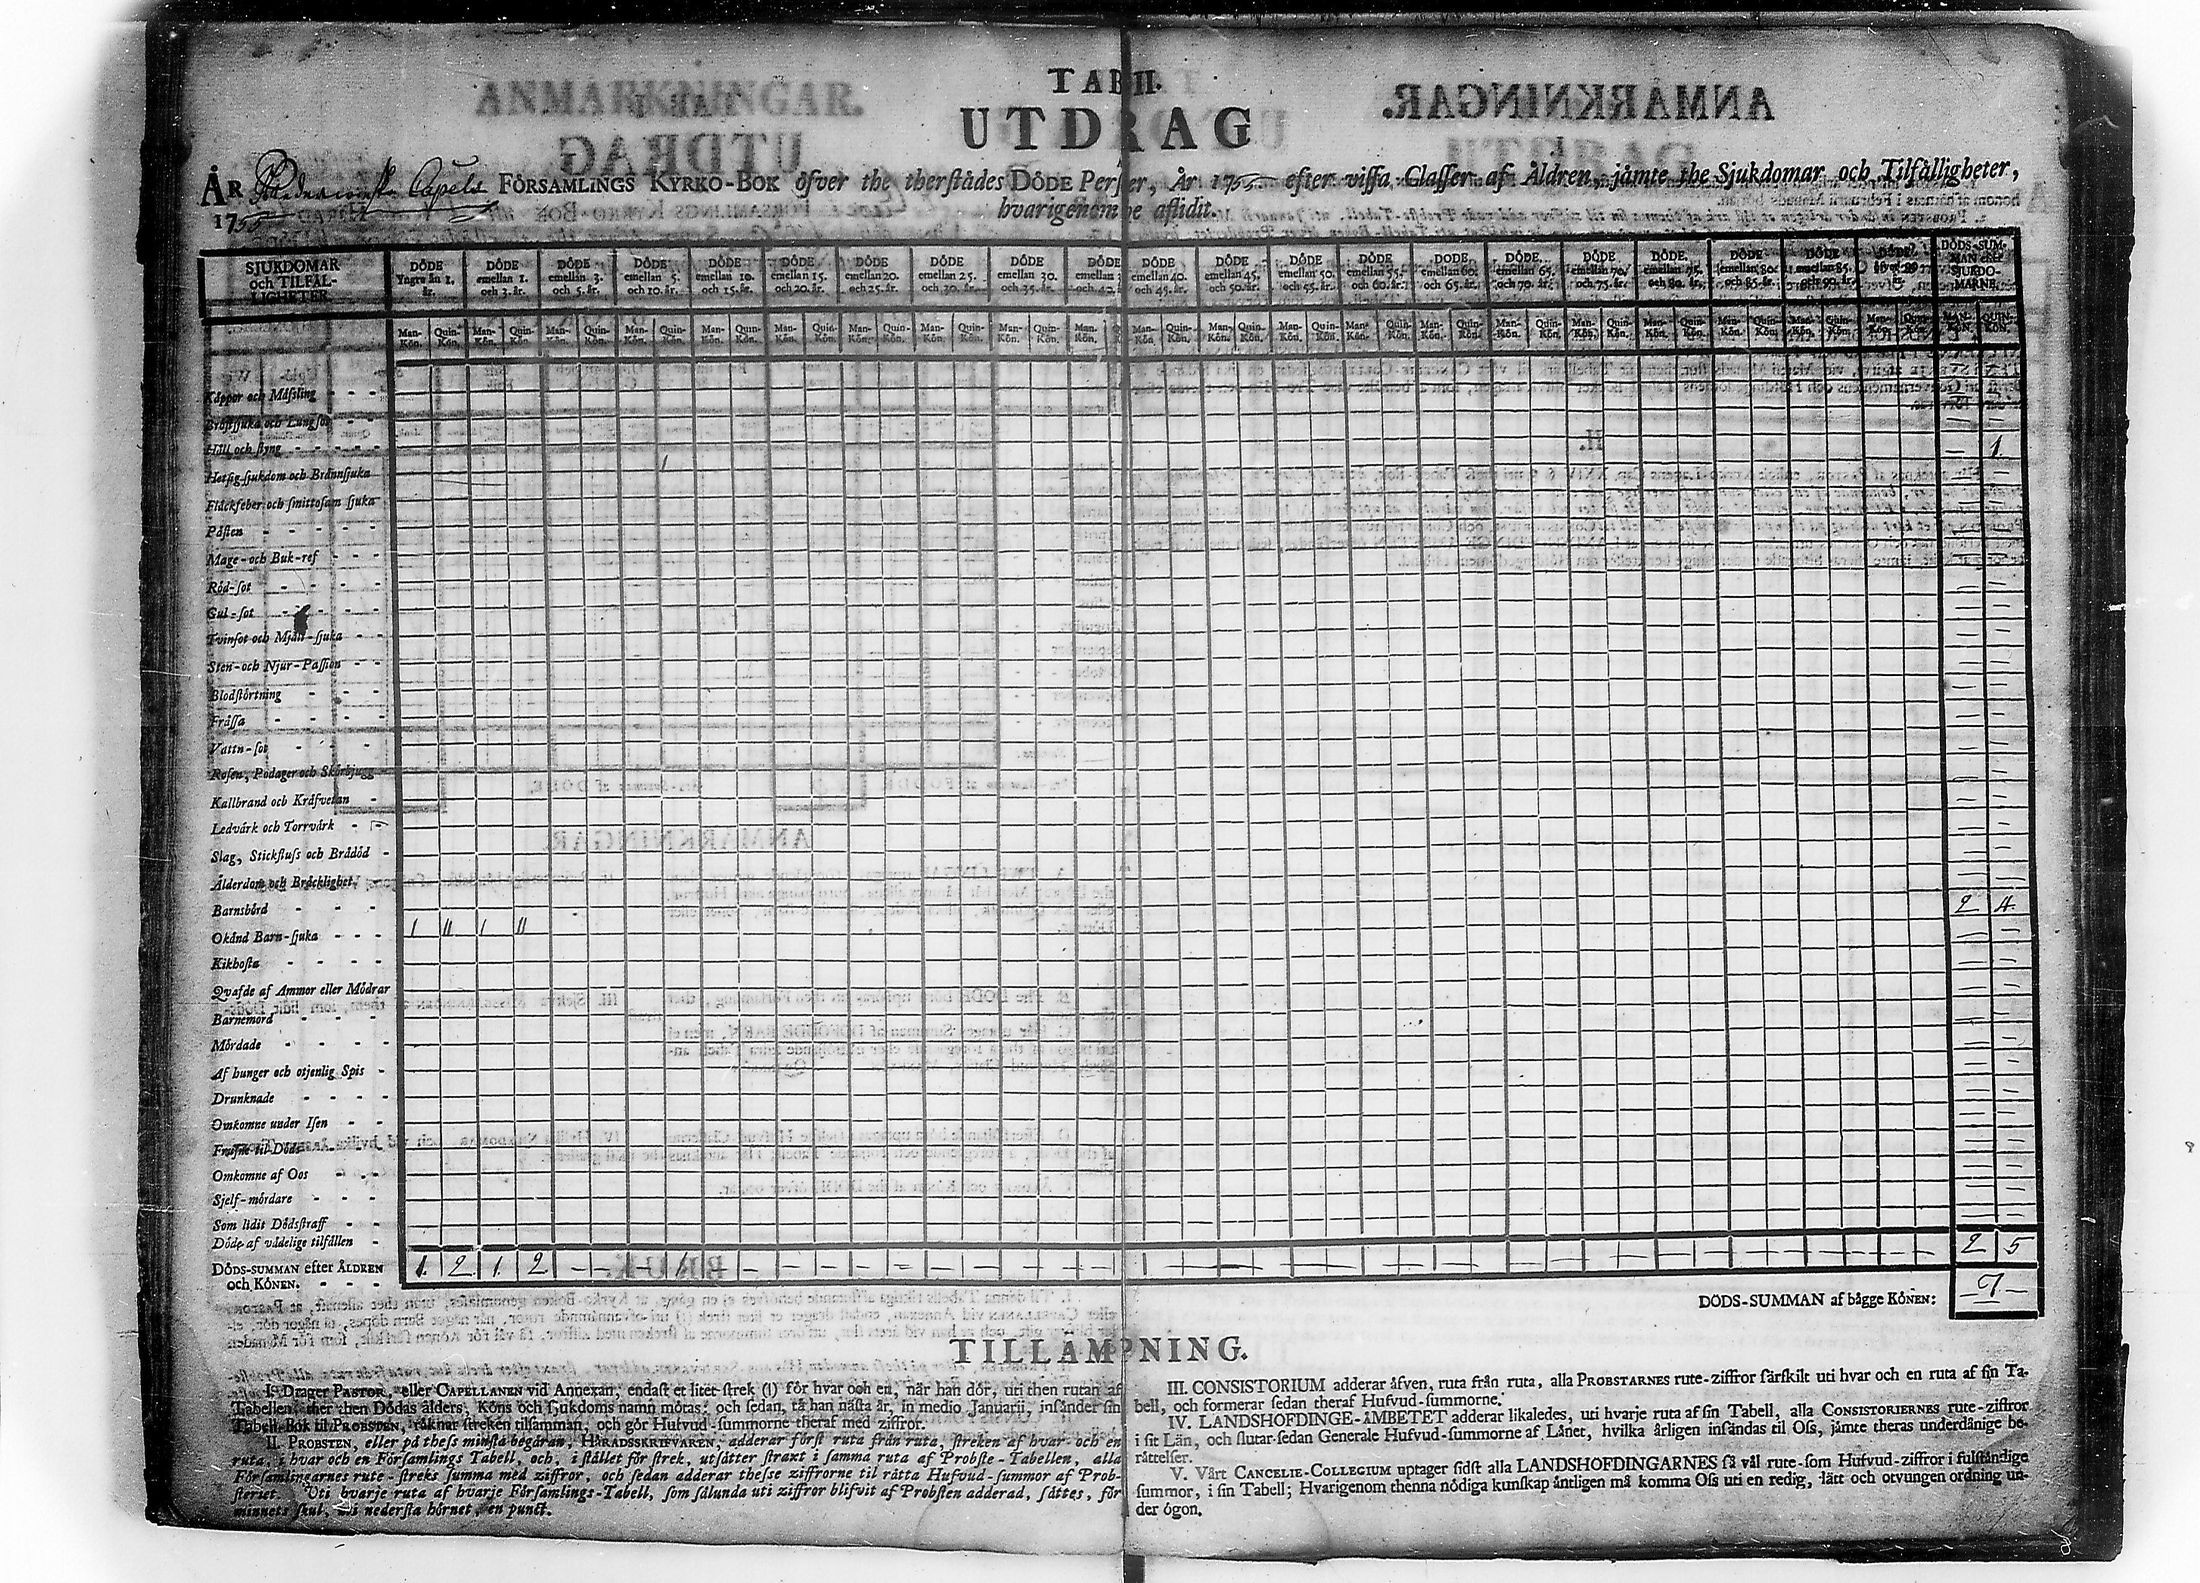 TAB II.
UTDRAG
ÅR Capels FÖRSAMLINGS KYRKO-BOK öfver the therstädes DÖDE Personer, År 1755 efter vissa Classer af Åldren, jämte the Sjukdomar och Tilfälligheter,
1755 hvarigenom the aflidit.
SJUKDOMAR och TILFÄLLIGHETER
DÖDE Yngre än 1. år.
DÖDE emellan 1. och 3. år.
DÖDE emellan 3. och 5. år.
DÖDE emellan 5. och 10. år.
DÖDE emellan 10. och 15. år.
DÖDE emellan 15. och 20. år.
DÖDE emellan 20. och 25. år.
DÖDE emellan 25. och 30. år.
DÖDE emellan 30. och 35. år.
DÖDE emellan och 40.
DÖDE emellan 40. och 45. år.
DÖDE emellan 45. och 50. år.
DÖDE emellan 50. och 55. år.
DÖDE emellan 55. och 60. år.
DÖDE emellan 60. och 65. år.
DÖDE emellan 65. och 70. år.
DÖDE emellan 70. och 75. år.
DÖDE emellan 75. och 80. år.
DÖDE emellan 80. och 85. år.
DÖDE emellan 85. och 90. år.
DÖDE
DÖDS-SUMMAN efter SJUKDOMARNE
Man-Kön. Quin-Kön. Man-Kön. Quin-Kön. Man-Kön. Quin-Kön. Man-Kön. Quin-Kön. Man-Kön. Quin-Kön. Man-Kön. Quin-Kön. Man-Kön. Quin-Kön. Man-Kön. Quin-Kön. Man-Kön. Quin-Kön. Man-Kön. Man-Kön. Quin-Kön. Man-Kön. Quin-Kön. Man-Kön. Quin-Kön. Man-Kön. Quin-Kön. Man-Kön. Quin-Kön. Man-Kön. Quin-Kön. Man-Kön. Quin-Kön. Man-Kön. Quin-Kön. Man-Kön. Quin-Kön. Man-Kön. Quin-Kön. Man-Kön. Quin-Kön. MAN-KÖN. QUIN-KÖN.
Kåppor och Mäßling - - -
Bröstsjuka och Lungsot - -
Håll och styng - - - - 1.
Hetsig-sjukdom och Brännsjuka 1
Fläckfeber och smittosam sjuka
Pästen - - - - -
Mage- och Buk-ref - - -
Röd-sot - - - -
Gul-sot - - - -
Tvinsot och Mjält-sjuka - -
Sten- och Njur-Passion - -
Blodstörtning - - -
Fråssa - - - -
Vattn-sot - - -
Rosen, Podager och Skörbjugg
Kallbrand och Kräfvetan -
Ledvärk och Torrvärk - -
Slag, Stickfluss och Brådöd -
Ålderdom och Bräcklighet -
Barnsbörd - - - 2 4.
Okänd Barn-sjuka - - - 1 11 1 11
Kikhosta - - - -
Qvafde af Ammor eller Mödrar
Barnemord - - - -
Mördade - - - -
Af hunger och otjenlig Spis -
Drunknade - - - -
Omkomne under Isen - -
Frusne til Döds - - -
Omkomne af Oos - - -
Sjelf-mördare - - -
Som lidit Dödsstraff - -
Döde af vådelige tilfällen - 2 5
DÖDS-SUMMAN efter ÅLDREN och KÖNEN. - - - 1. 2 1. 2 - - - 1 - - - - - - - - - -
DÖDS-SUMMAN af bägge KÖNEN: 7
TILLÄMPNING.
I. Drager PASTOR, eller CAPELLANEN vid Annexan, endast et litet strek (I) för hvar och en, när han dör, uti then rutan af
Tabellen, ther then Dödas ålders, Köns och sjukdoms namn mötas; och sedan, tå han nästa år, in medio Januarii, insänder sin
Tabell-Bok til PROBSTEN, räknar streken tillsamman, och gör Hufvud-summorne theraf med ziffror.
II. PROBSTEN, eller på thess minsta begäran, HÄRADSSKRIFVAREN, adderar först ruta från ruta, streken af hvar och en
ruta, i hvar och en Församlings Tabell, och, i stället för strek, utsätter straxt i samma ruta af Probste-Tabellen, alla
Församlingarnes rute-streks summa med ziffror, och sedan adderar thesse ziffrorne til rätta Hufvud-summor af Prob-
steriet. Uti hvarje ruta af hvarje Församlings-Tabell, som sålunda uti ziffror blifvit af Probsten adderad, sättes, för
minnets skul, uti nedersta hörnet, en punct.
III. CONSISTORIUM adderar äfven, ruta från ruta, alla PROBSTARNES rute-ziffror särskilt uti hvar och en ruta af sin Ta-
bell, och formerar sedan theraf Hufvud-summorne.
IV. LANDSHOFDINGE-ÄMBETET adderar likaledes, uti hvarje ruta af sin Tabell, alla CONSISTORIERNES rute-ziffror
i sit Län, och slutar sedan Generale Hufvud-summorne af Länet, hvilka årligen insändas til Oss, jämte theras underdånige be-
rättelser.
V. Vårt CANCELIE-COLLEGIUM uptager sidst alla LANDSHOFDINGARNES så väl rute-som Hufvud-ziffror i fulständige
summor, i sin Tabell; Hvarigenom thenna nödiga kunskap äntligen må komma Oss uti en redig, lätt och otvungen ordning un-
der ögon.